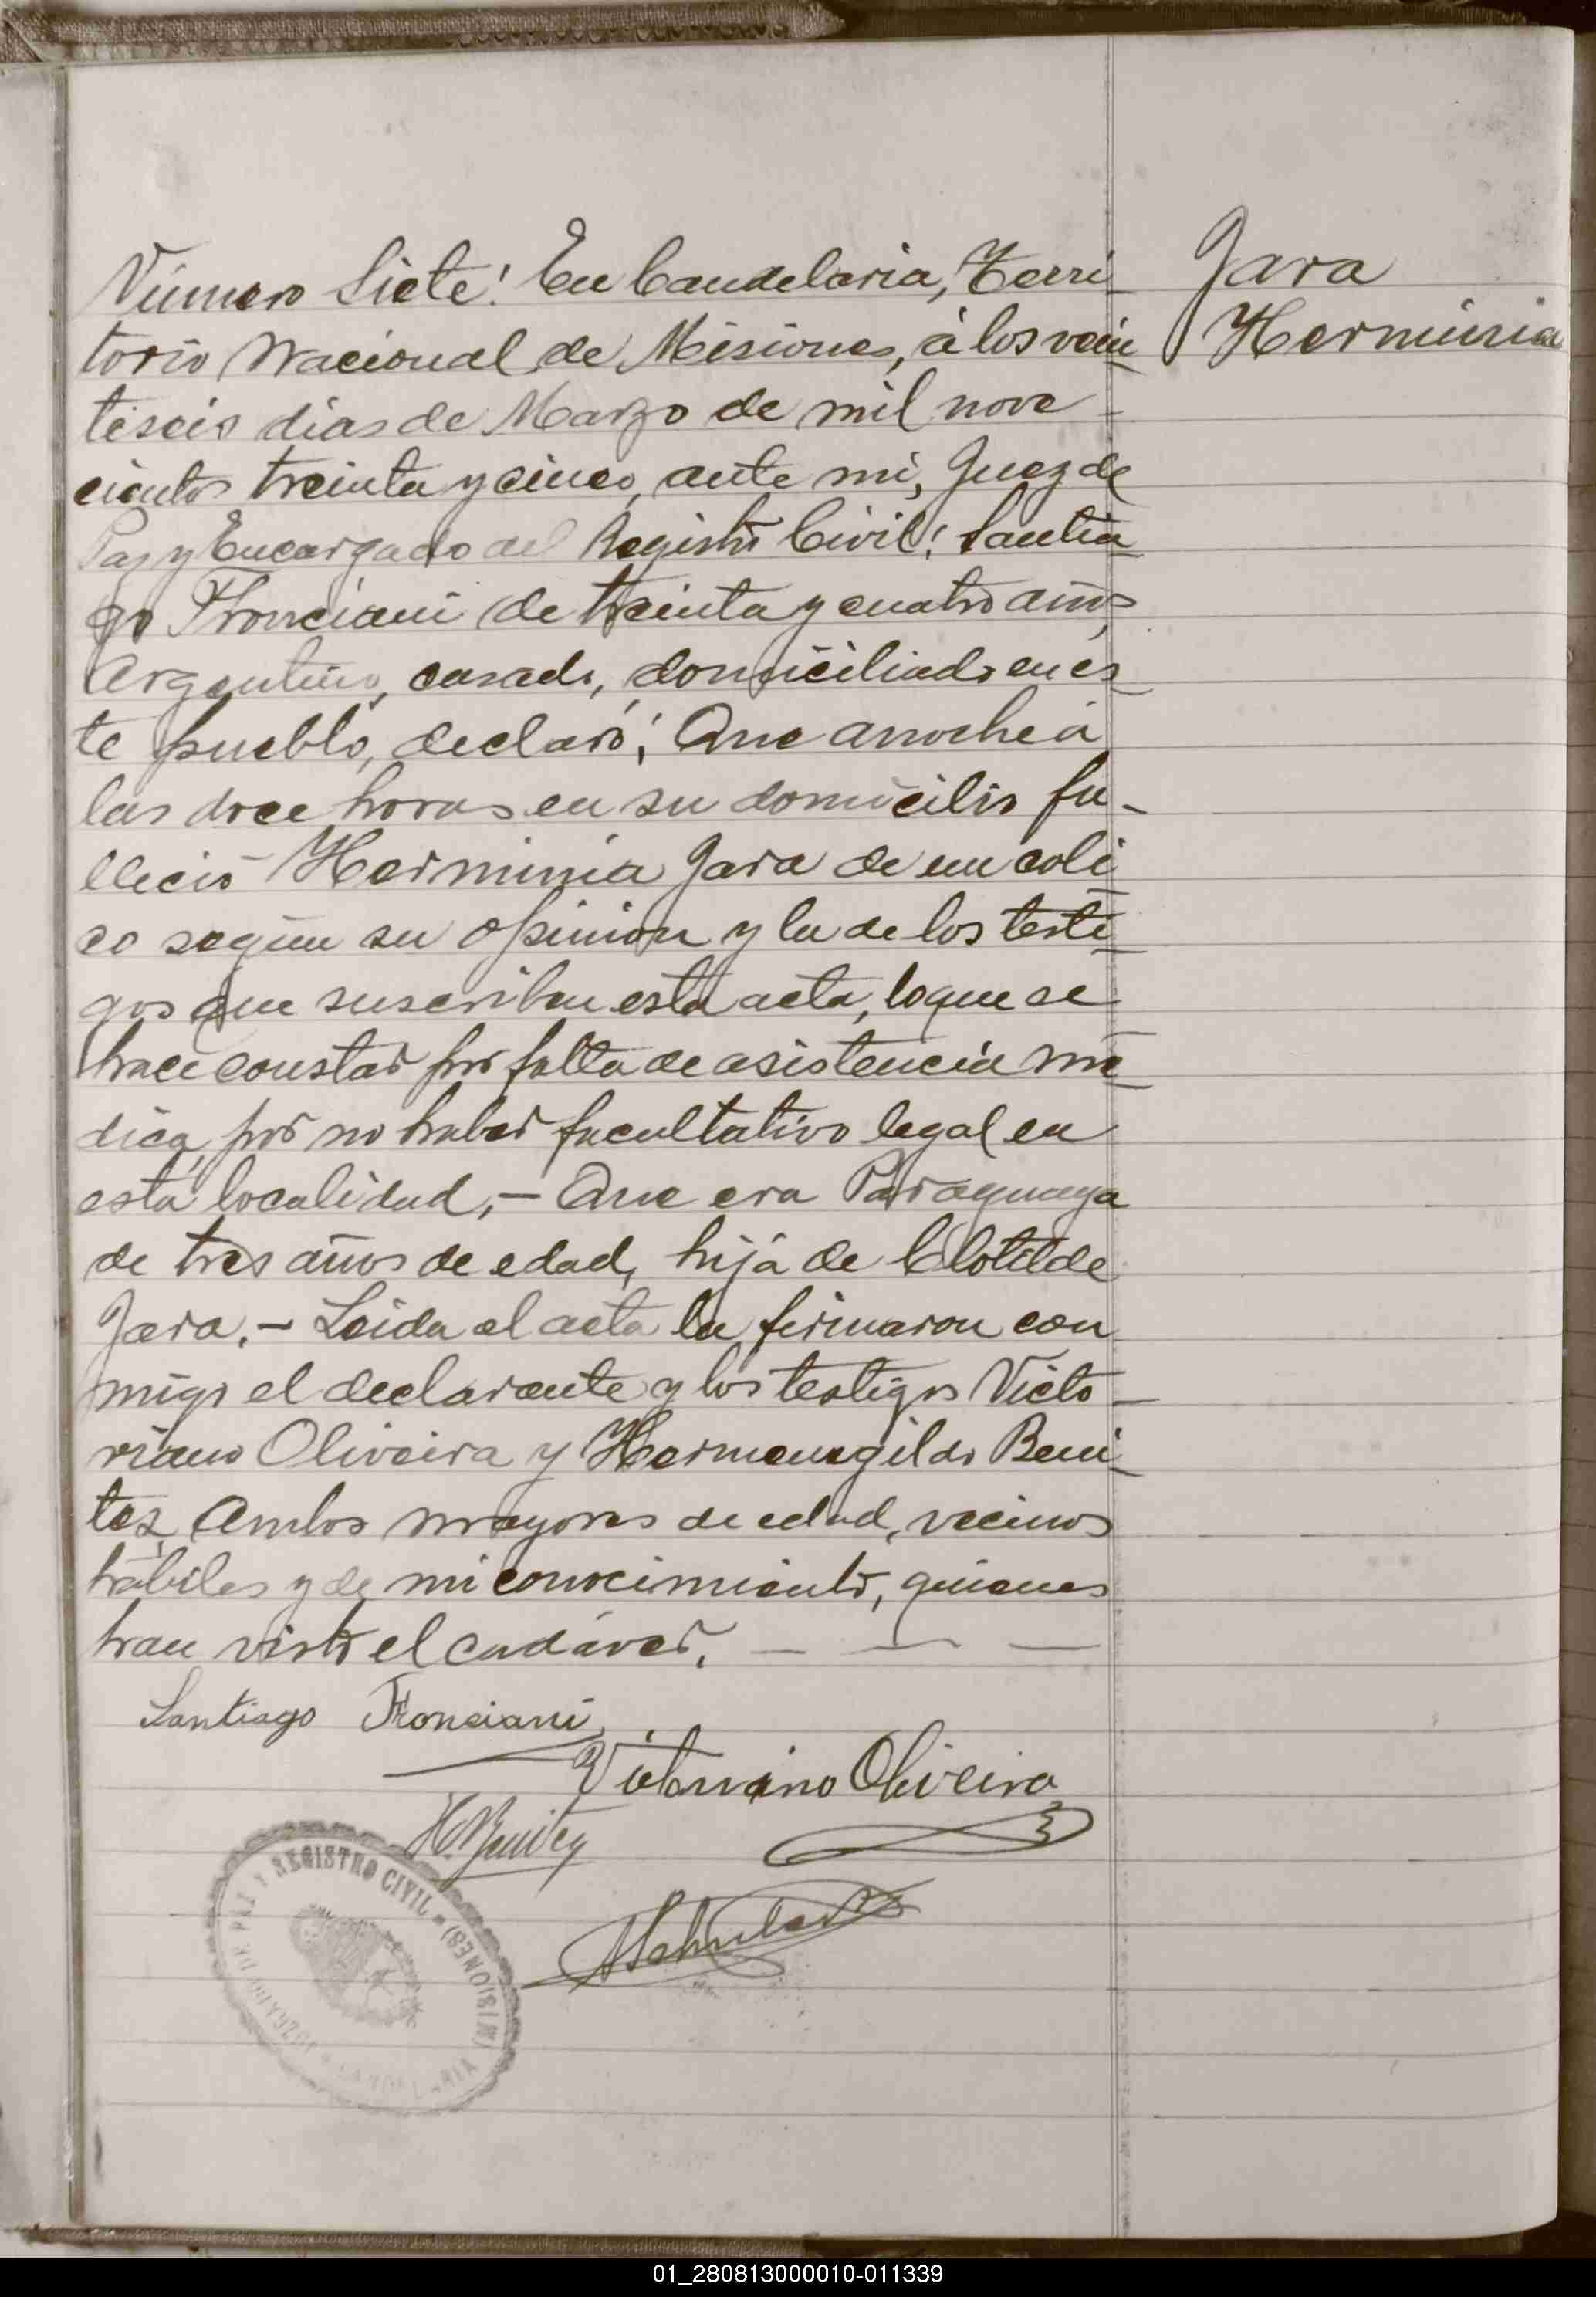 Número Siete: En Candelaria, Terri-
torio Nacional de Misiones, á los vein-
tiseis dias de Marzo de mil nove-
cientos treinta y cinco, ante mi, Juez de
Paz y Encargado del Registro Civil: Santia-
go Fronciani de treinta y cuatro años,
Argentino, casado, domiciliado en es-
te pueblo, declaró: Que anoche á
las doce horas en su domicilio fa-
lleció Herminia Jara de un coli-
co según su opinion y la de los testi-
gos que suscriben esta acta, lo que se
hace constar por falta de asistencia mé-
dica, por no haber facultativo legal en
esta localidad,- Que era Paraguaya
de tres años de edad, hija de Clotilde
Jara.- Leida el acta la firmaron con
migo el declarante y los testigos Victo-
riano Oliveira y Hermenegildo Beni-
tez, Ambos mayores de edad, vecinos
hábiles y de mi conocimiento, quienes
han visto el cadáver. — — —
Jara
Herminia
Santiago Fronciani
Victoriano Oliveira
H. Benitez
JUZGADO DE PAZ Y REGISTRO CIVIL - (MISIONES)
CANDELARIA
01_280813000010-011339